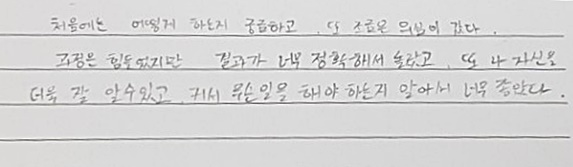 처음에는 어떻게 하는지 궁금하고, 또 조금은 의심이 갔다.
과정은 힘들었지만 결과가 너무 정확해서 놀랐고, 또 나 자신을
더욱 잘 알수있고, 커서 무슨일을 해야 하는지 알아서 너무 좋았다.